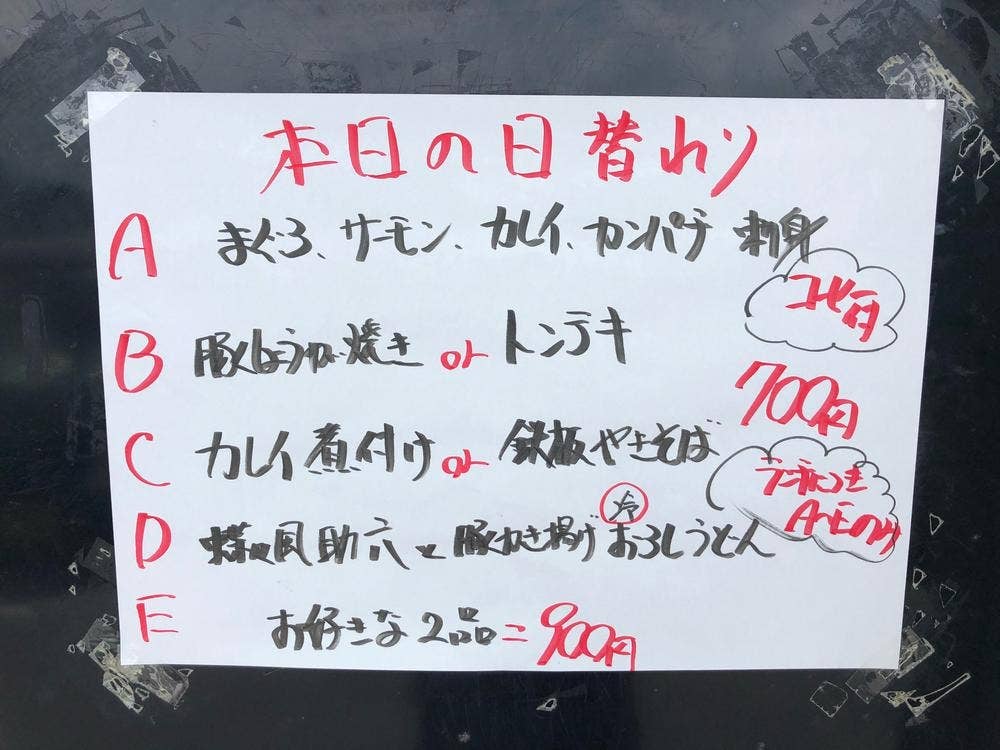 本日の日替わり
A まぐろ、サーモン、カレイ、カンパチ 刺身
コーヒー付
B 豚しょうが焼き or トンテキ
700円
C カレイ煮付け or 鉄板やきそば
A〜Eのみ
D 風助六と豚かき揚げおろしうどん
冷
E お好きな2品=900円